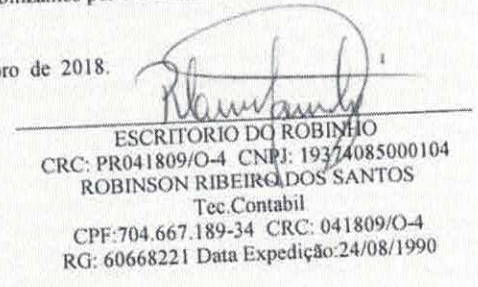 ro de 2018.
ESCRITORIO DO ROBINHO
CRC: PR041809/O-4 CNPJ: 19374085000104
ROBINSON RIBEIRO DOS SANTOS
Tec.Contabil
CPF:704.667.189-34 CRC: 041809/O-4
RG: 60668221 Data Expedição:24/08/1990